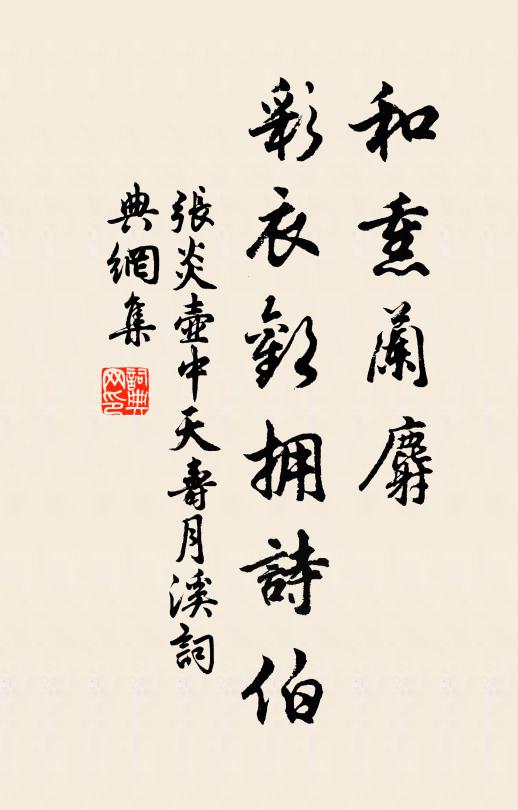 和熏蘭麝
彩衣歡擁詩伯
張炎壺中天壽月溪詞
典網集
詞典網印